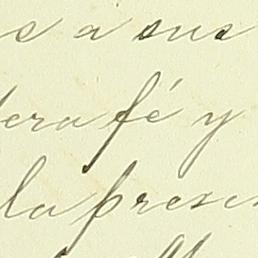 s a sus
era fé y
la presen